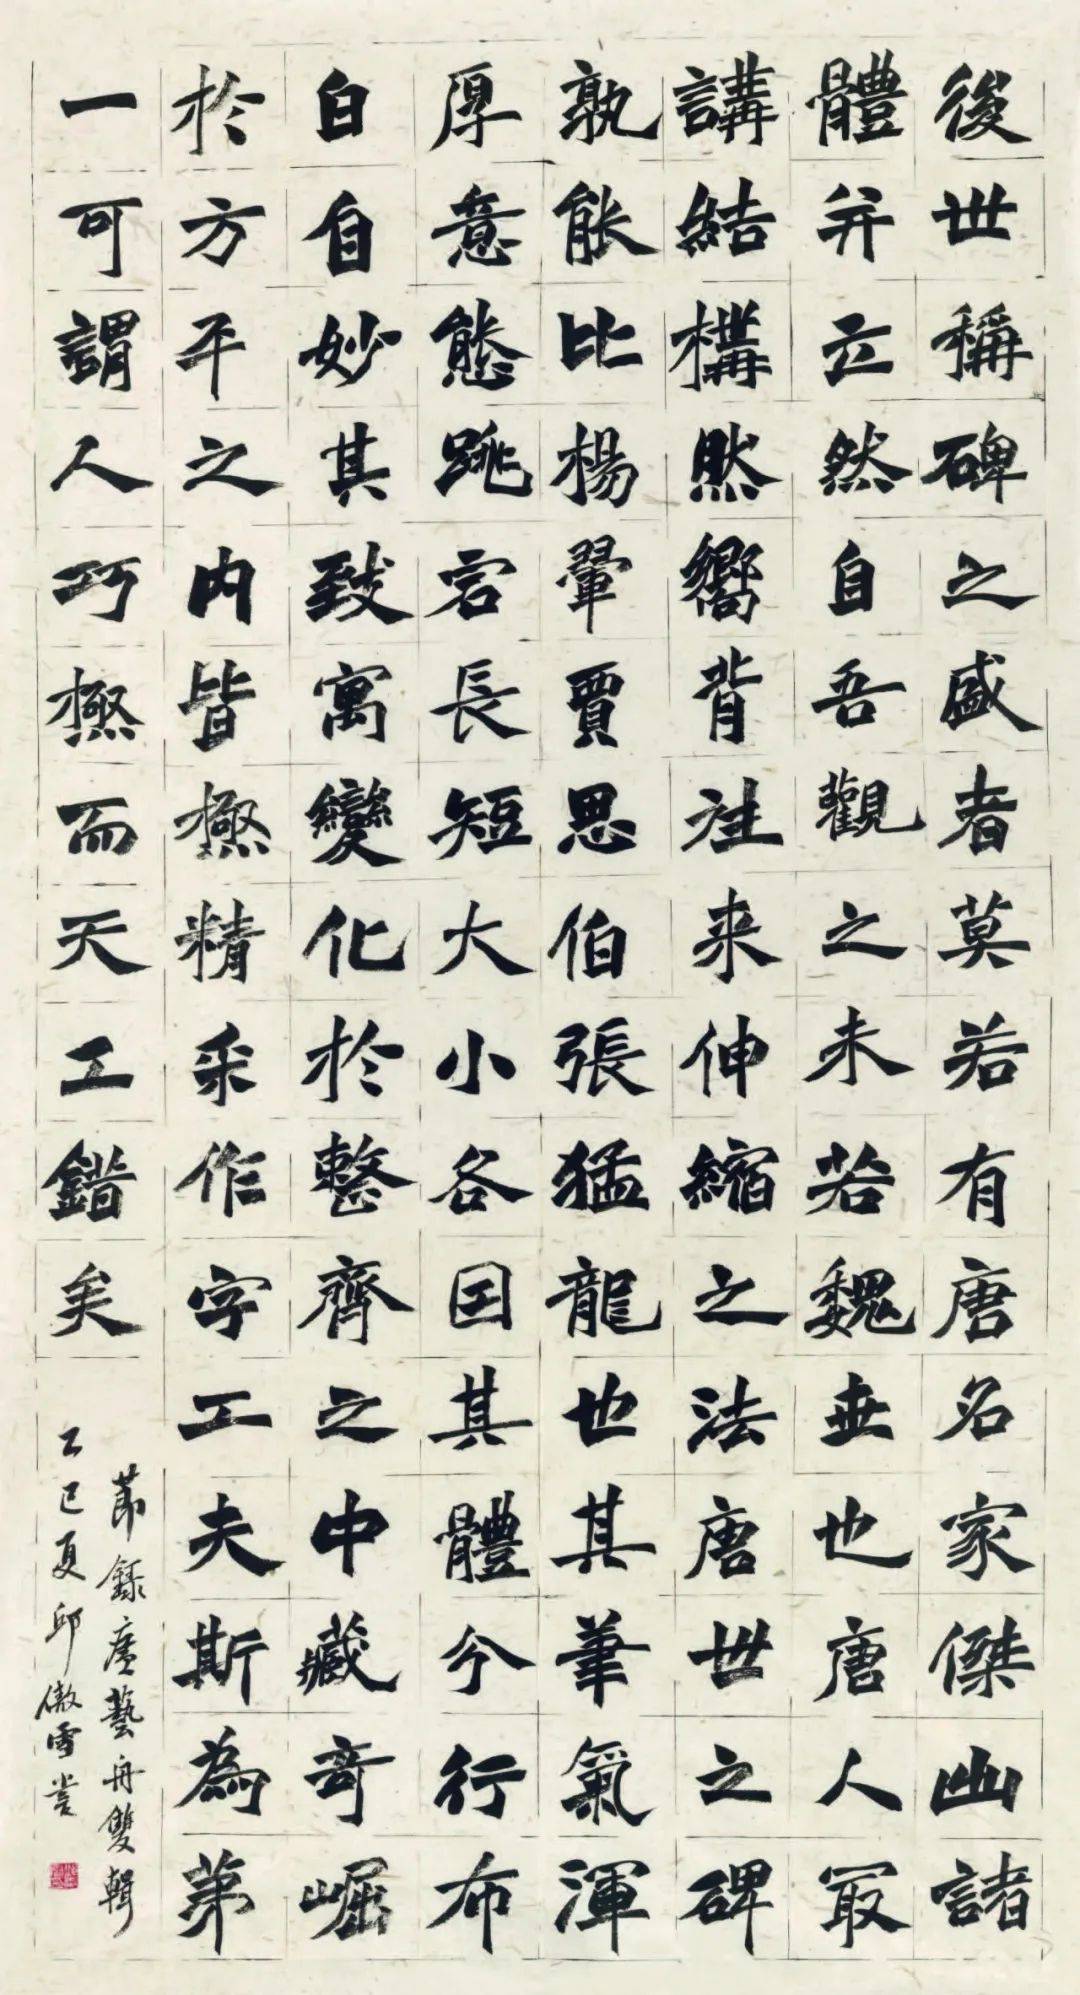 後世稱碑之盛者莫若有唐名家傑出諸
體并立然自吾觀之未若魏世也唐人冣
講結構然嚮背往来伸縮之法唐世之碑
孰能比楊翬賈思伯張猛龍也其筆氣渾
厚意態跳宕長短大小各因其體分行布
白自妙其致寓變化於整齊之中藏奇崛
於方平之內皆極精采作字工夫斯為第
一可謂人巧極而天工錯矣
節錄廣藝舟雙輯
乙巳夏邱傲雪書